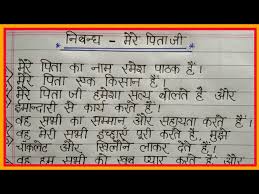 निबन्ध - मेरे पिता जी
मेरे पिता का नाम रमेश पाठक है।
मेरे पिता एक किसान हैं
मेरे पिता जी हमेशा सत्य बोलते हैं और
ईमानदारी से कार्य करते हैं।
वह सभी का सम्मान और सहायता करते हैं
वह मेरी सभी इच्छाएँ पूरी करते हैं, मुझे
चॉकलेट और खिलौने लाकर देते हैं।
वह हम सभी को खूब प्यार करते हैं और